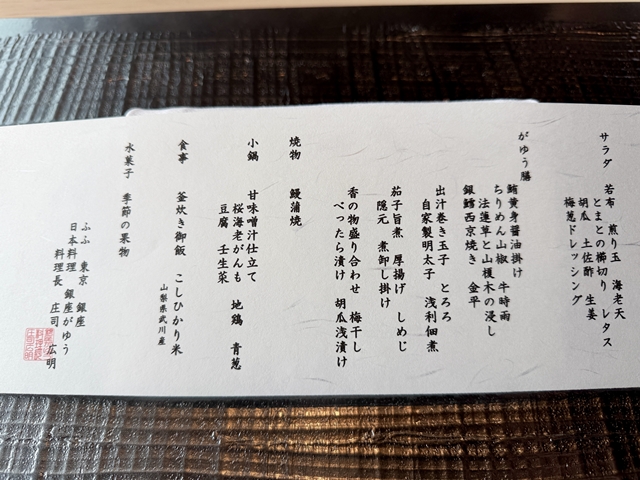 サラダ 若布 煎り玉 海老天
とまとの櫛切り レタス
胡瓜 土佐酢 生姜
梅葱ドレッシング
がゆう膳
鮪黄身醤油掛け
ちりめん山椒 牛時雨
法蓮草と山榎木の浸し
銀鱈西京焼き 金平
出汁巻き玉子 とろろ
自家製明太子 浅利佃煮
茄子旨煮 厚揚げ しめじ
隠元 煮卸し掛け
香の物盛り合わせ 梅干し
べったら漬け 胡瓜浅漬け
焼物 鰻蒲焼
小鍋 甘味噌汁仕立て
桜海老がんも 地鶏 青葱
豆腐 壬生菜
食事 釜炊き御飯 こしひかり米
山梨県武川産
水菓子 季節の果物
ふふ 東京 銀座
日本料理 銀座がゆう
料理長 庄司 広明